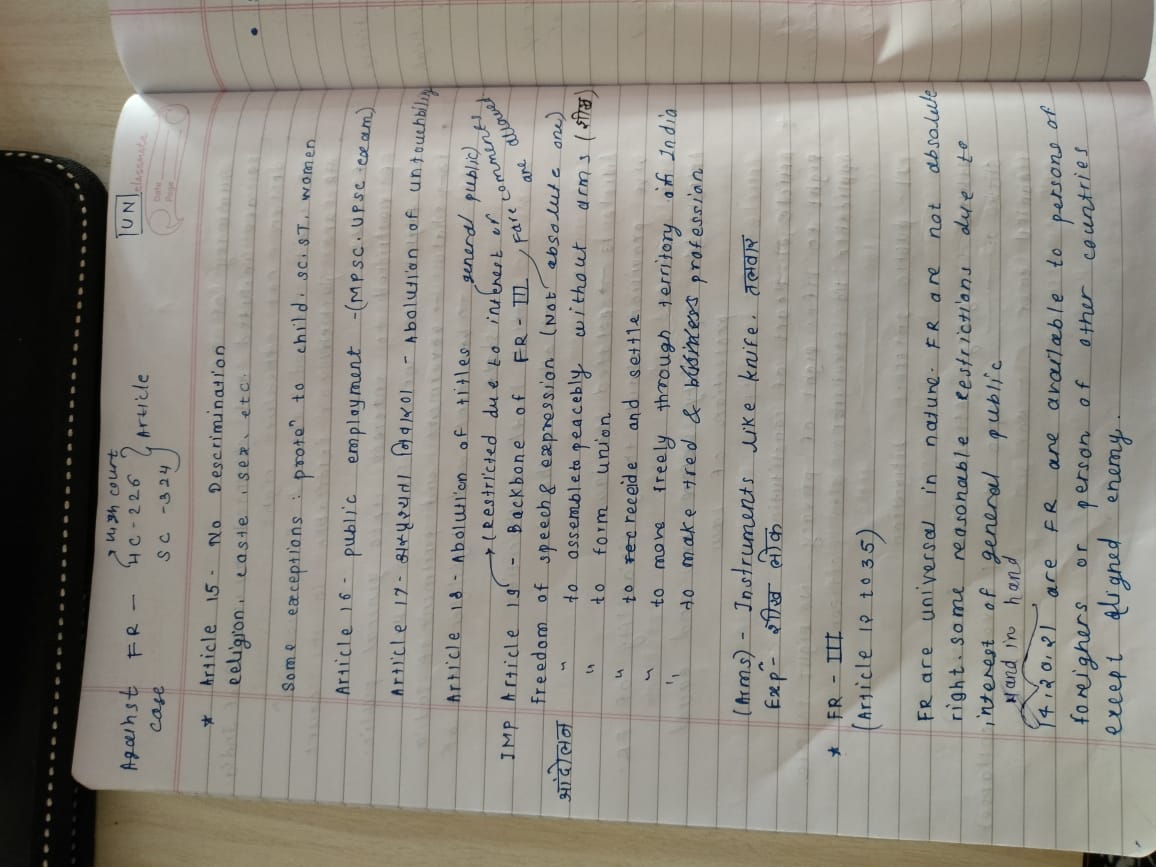 UN
classmate
Date
Page
Against FR - HC - 226 } Article
High court
case SC - 324
* Article 15 - No Descrimination
religion, caste, sex, etc.
Some exceptions : protⁿ to child, SC, ST, women
Article 16 - public employment - (MPSC. UPSC exam)
Article 17 - अस्पृश्यता निवारण - Abolution of untouchbility
Article 18 - Abolution of titles
general public)
→ (Restricted due to interest of
IMP Article 19 - Backbone of FR - III, Fare comments are allowed
Freedom of speech & expression (Not absolute one)
आंदोलन " to assemble peacebly without arms (शीख)
" to form union
" to receide and settle
" to move freely through territory of India
" to make tred & business profession
(Arms) - Instruments like knife, तलवार
Expⁿ - शीख लोक
* FR - III
(Article 12 to 35)
FR are universal in nature. FR are not absolute
right. some reasonable restrictions due to
interest of general public
Hand in hand
14, 20, 21 are FR are available to persons of
foreighers or person of other countries
except aligned enemy.